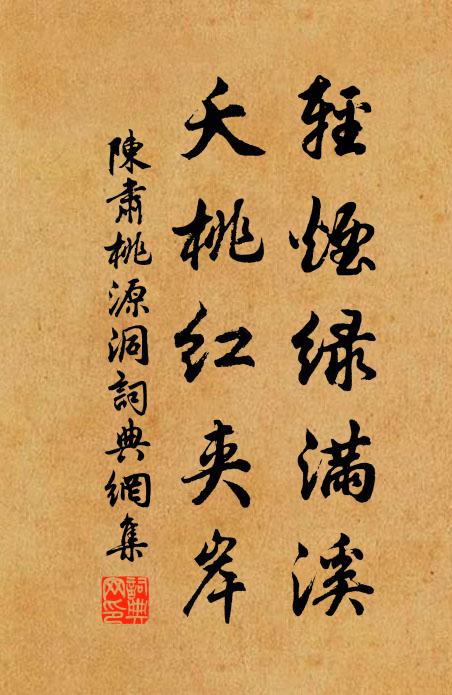 輕煙綠滿溪
夭桃紅夾岸
陳肅桃源洞詞典網集
詞典網印